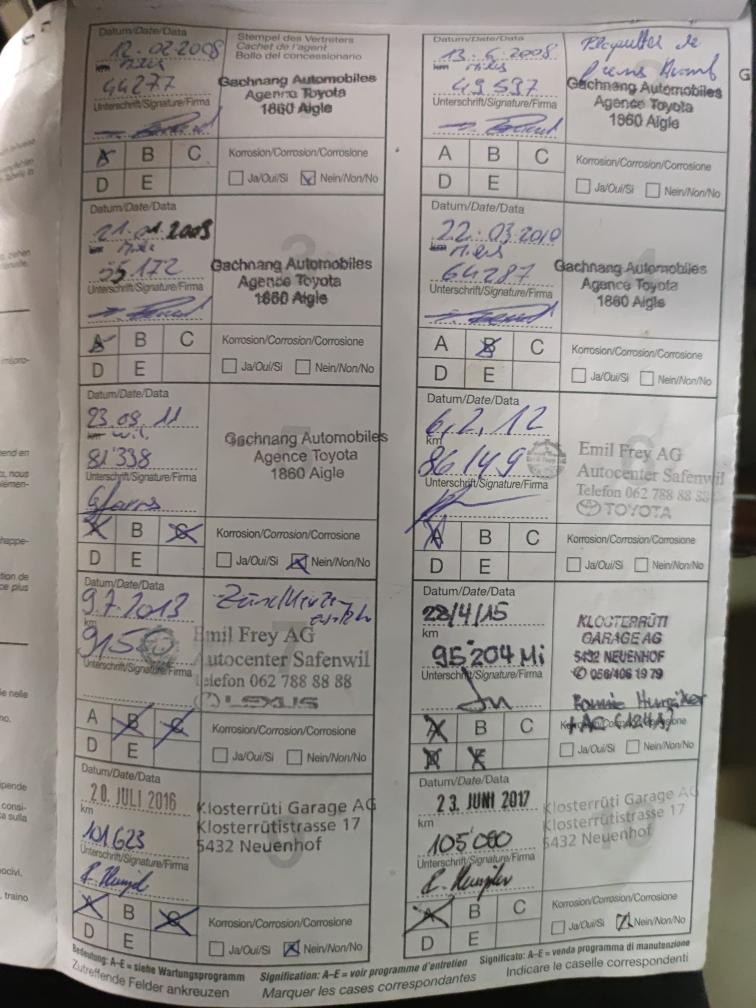 Datum/Date/Data
12.02.2008
km miles
44277
Unterschrift/Signature/Firma
Stempel des Vertreters
Cachet de l'agent
Bollo del concessionario
Gachnang Automobiles
Agence Toyota
1860 Aigle
A B C
D E
Korrosion/Corrosion/Corrosione
Ja/Oui/Si Nein/Non/No
Datum/Date/Data
13.6.2008
km miles
49597
Unterschrift/Signature/Firma
Plaquettes de
Gachnang Automobiles
Agence Toyota
1860 Aigle
A B C
D E
Korrosion/Corrosion/Corrosione
Ja/Oui/Si Nein/Non/No
G
Datum/Date/Data
km miles
55172
Unterschrift/Signature/Firma
3
Gachnang Automobiles
Agence Toyota
1860 Aigle
A B C
D E
Korrosion/Corrosion/Corrosione
Ja/Oui/Si Nein/Non/No
Datum/Date/Data
22.03.2010
km miles
64287
Unterschrift/Signature/Firma
4
Gachnang Automobiles
Agence Toyota
1860 Aigle
A B C
D E
Korrosion/Corrosion/Corrosione
Ja/Oui/Si Nein/Non/No
Datum/Date/Data
23.09.11
km mil.
81'338
Unterschrift/Signature/Firma
Gachnang Automobiles
Agence Toyota
1860 Aigle
A B C
D E
Korrosion/Corrosion/Corrosione
Ja/Oui/Si Nein/Non/No
Datum/Date/Data
6.2.12
km
86149
Unterschrift/Signature/Firma
Emil Frey AG
Autocenter Safenwil
Telefon 062 788 88 88
TOYOTA
A B C
D E
Korrosion/Corrosion/Corrosione
Ja/Oui/Si Nein/Non/No
Datum/Date/Data
9.7.2013
km
Unterschrift/Signature/Firma
7
Emil Frey AG
Autocenter Safenwil
Telefon 062 788 88 88
LEXUS
A B C
D E
Korrosion/Corrosion/Corrosione
Ja/Oui/Si Nein/Non/No
Datum/Date/Data
28/4/15
km
95'204 Mi
Unterschrift/Signature/Firma
KLOSTERRÜTI
GARAGE AG
5432 NEUENHOF
056/406 19 79
A B C
Ja/Oui/Si Nein/Non/No
Datum/Date/Data
20. JULI 2016
km
101'623
Unterschrift/Signature/Firma
9
Klosterrüti Garage AG
Klosterrütistrasse 17
5432 Neuenhof
A B C
D E
Korrosion/Corrosion/Corrosione
Ja/Oui/Si Nein/Non/No
Datum/Date/Data
23. JUNI 2017
km
105'000
Unterschrift/Signature/Firma
Klosterrüti Garage AG
Klosterrütistrasse 17
5432 Neuenhof
A B C
D E
Korrosion/Corrosion/Corrosione
Ja/Oui/Si Nein/Non/No
Bedeutung: A–E = siehe Wartungsprogramm Signification: A–E = voir programme d'entretien Significato: A–E = venda programma di manutenzione
Zutreffende Felder ankreuzen Marquer les cases correspondantes Indicare le caselle correspondenti